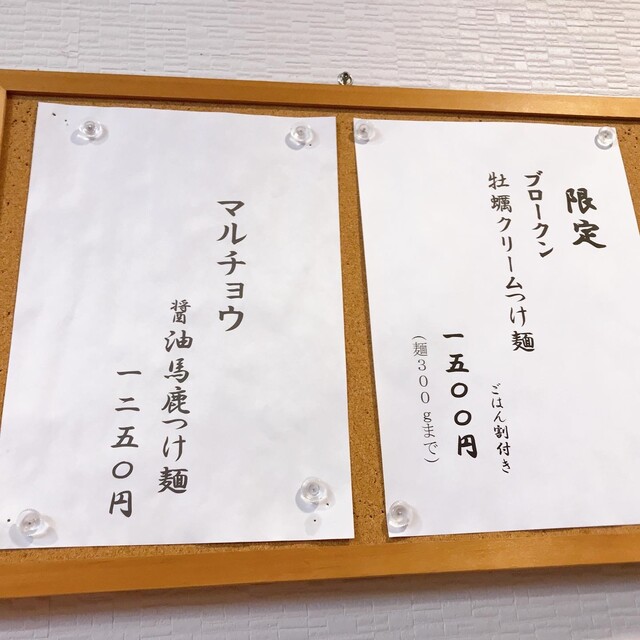 限定
ブロークン
牡蠣クリームつけ麺
ごはん割付き
一五〇〇円
(麺300gまで)
マルチョウ
醤油馬鹿つけ麺
一二五〇円